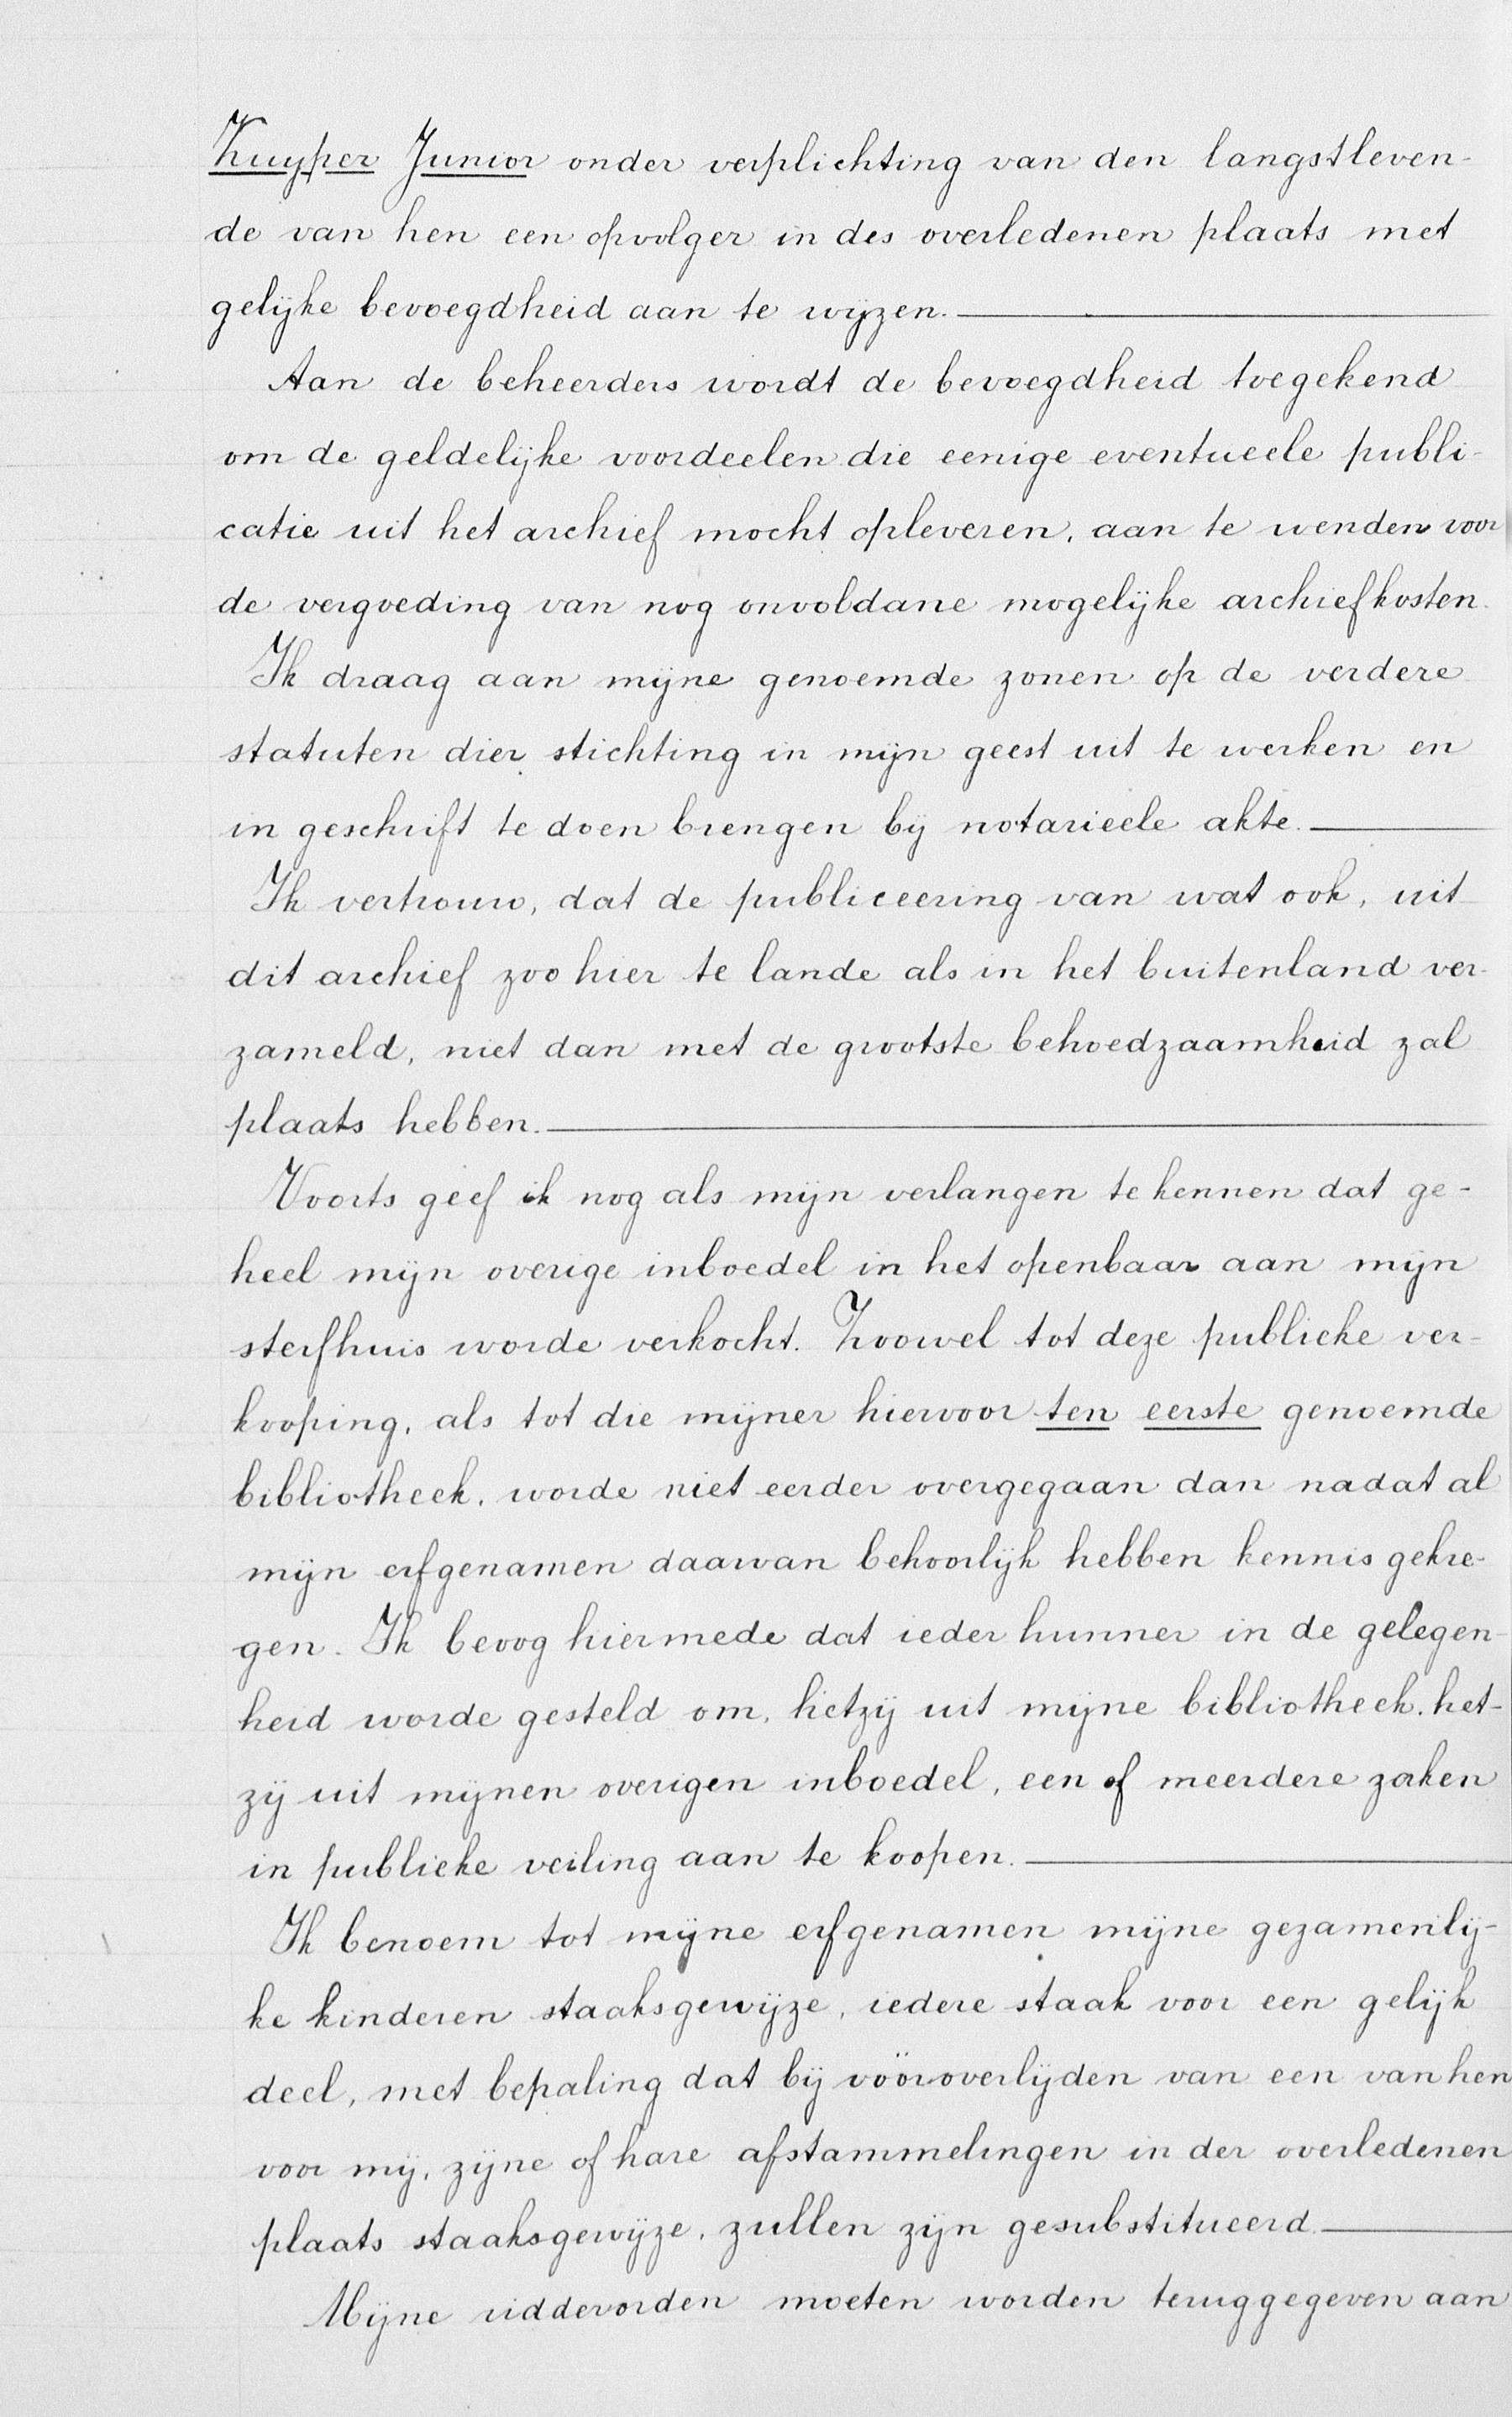 Kuyper Junior onder verplichting van den langstleven-
de van hen een opvolger in des overledenen plaats met
gelijke bevoegdheid aan te wijzen.
Aan de beheerders wordt de bevoegdheid toegekend
om de geldelijke voordeelen die eenige eventueele publi-
catie uit het archief mocht opleveren, aan te wenden voor
de vergoeding van nog onvoldane mogelijke archiefkosten.
Ik draag aan mijne genoemde zonen op de verdere
statuten dier stichting in mijn geest uit te werken en
in geschrift te doen brengen bij notarieele akte.
Ik vertrouw, dat de publiceering van wat ook, uit
dit archief zoo hier te lande als in het buitenland ver-
zameld, niet dan met de grootste behoedzaamheid zal
plaats hebben.
Voorts geef ik nog als mijn verlangen te kennen dat ge-
heel mijn overige inboedel in het openbaar aan mijn
sterfhuis worde verkocht. Zoowel tot deze publieke ver-
kooping, als tot die mijner hiervoor ten eerste genoemde
bibliotheek, worde niet eerder overgegaan dan nadat al
mijn erfgenamen daarvan behoorlijk hebben kennis gekre-
gen. Ik beoog hiermede dat ieder hunner in de gelegen-
heid worde gesteld om, hetzij uit mijne bibliotheek, het-
zij uit mijnen overigen inboedel, een of meerdere zaken
in publieke veiling aan te koopen.
Ik benoem tot mijne erfgenamen mijne gezamenlij-
ke kinderen staaksgewijze, iedere staak voor een gelijk
deel, met bepaling dat bij vööroverlijden van een van hen
voor mij, zijne of hare afstammelingen in der overledenen
plaats staaksgewijze, zullen zijn gesubstitueerd.
Mijne ridderorden moeten worden teruggegeven aan